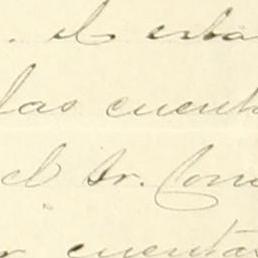 . el esta
las cuent
el Sr. Con
r cuentas